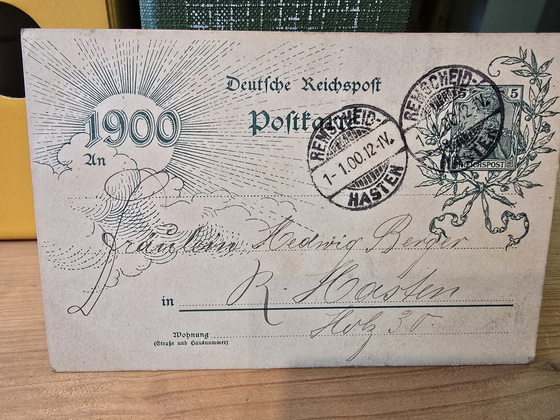 Deutsche Reichspost
Postkarte
1900
An
5
REICHSPOST
REMSCHEID-
1-1.00.12-1V.
HASTEN
REMSCHEID-
1.00.12-1V.
HASTEN
Fräulein Hedwig Berger
in R. Hasten
Holz 30
Wohnung
(Straße und Hausnummer)